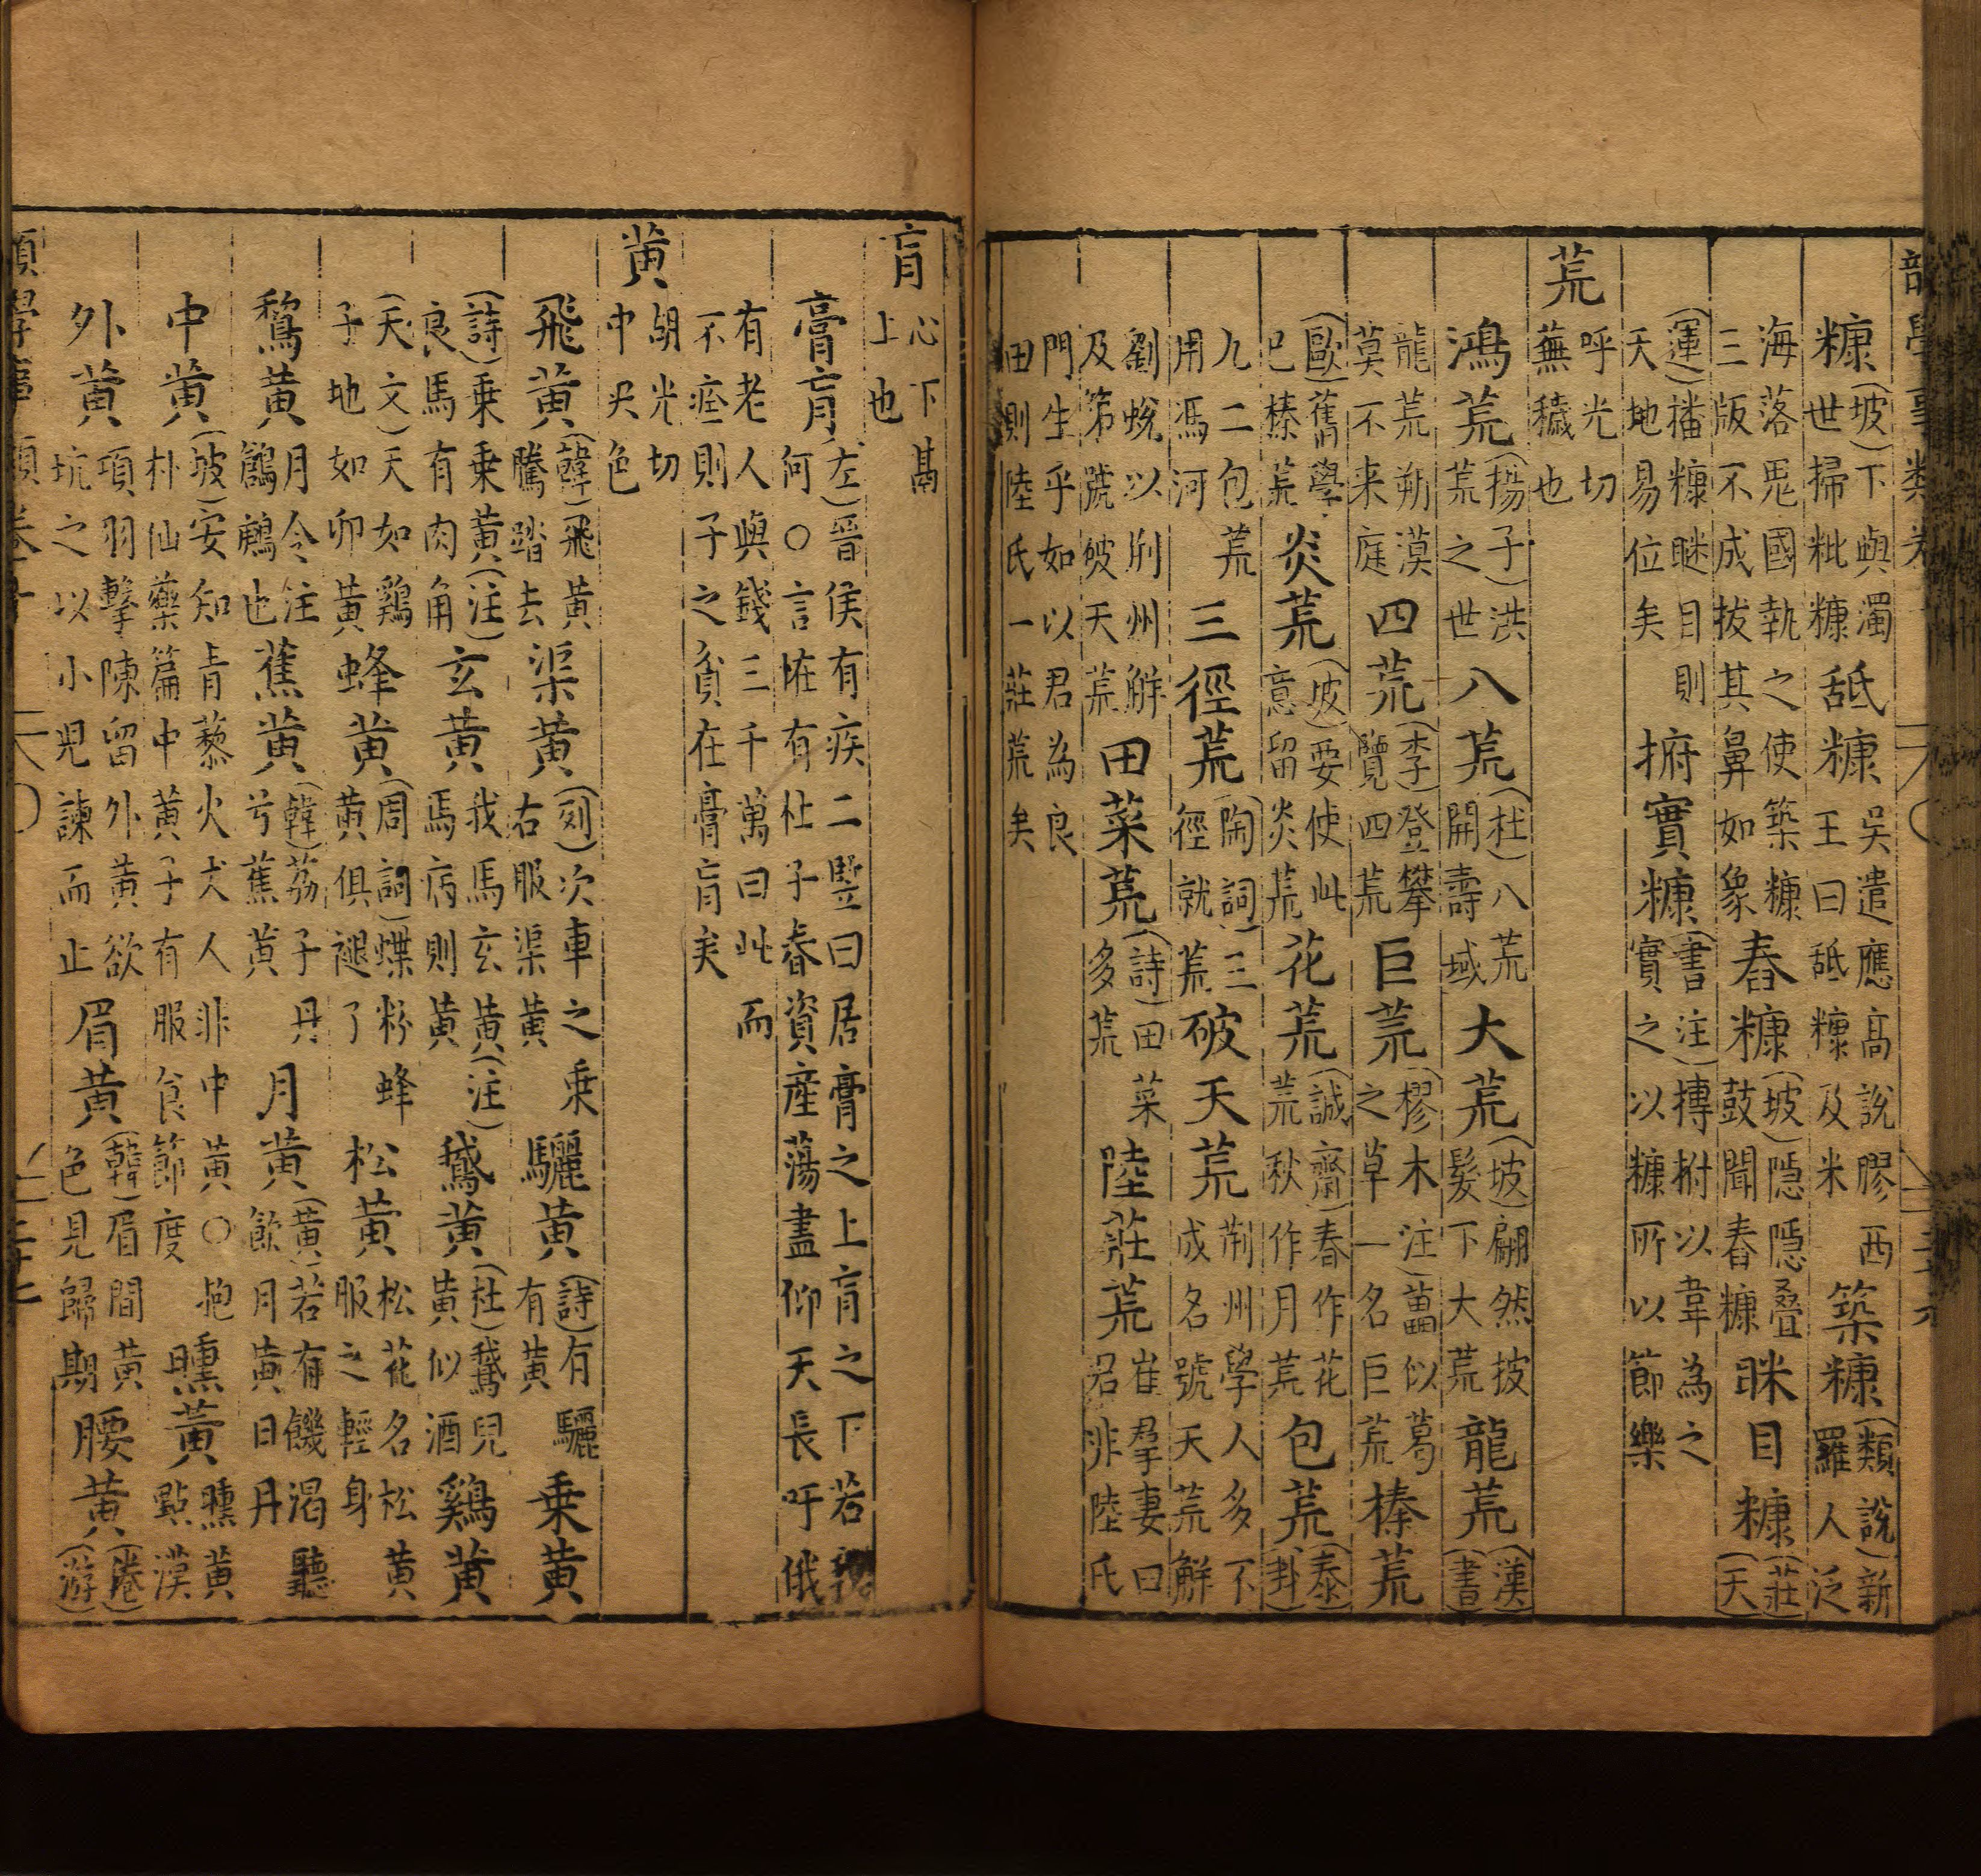 糠(坡)下與濁世掃粃糠舐糠吳遣應高說膠西王曰舐糠及米築糠(類說)新羅人泛
海落鬼國執之使築糠三版不成拔其鼻如象舂糠(坡)隱隱叠鼓聞舂糠眯目糠(莊)(天)
(運)播糠眯目則天地易位矣捬實糠(書注)搏拊以韋為之實之以糠所以節樂
荒呼光切蕪穢也
鴻荒(揚子)洪荒之世八荒(杜)八荒開壽域大荒(坡)翩然披髮下大荒龍荒(漢)(書)
龍荒朔漠莫不来庭四荒(李)登攀覽四荒巨荒(樛木注)藟似葛之草一名巨荒榛荒
(歐)舊學巳榛荒炎荒(坡)要使此意留炎荒花荒(誠齋)春作花荒秋作月荒包荒(泰)(卦)
九二包荒用馮河三徑荒(陶詞)三徑就荒破天荒荊州學人多不成名號天荒解
劉蛻以荊州解及第號破天荒田菜荒(詩)田菜多荒陸莊荒崔羣妻曰君非陸氏
門生乎如以君為良田則陸氏一莊荒矣
肓心下鬲上也
膏肓(左)晉侯有疾二豎曰居膏之上肓之下若我何○言恠有杜子春資産蕩盡仰天長吁俄
有老人與錢三千萬曰此而不痊則子之貧在膏肓矣
黄胡光切中央色
飛黄(韓)飛黄騰踏去渠黄(列)次車之乗右服渠黄驪黄(詩)有驪有黄乗黄
(詩)乗乗黄(注)良馬有肉角玄黄我馬玄黄(注)馬病則黄鵞黄(杜)鵞兒黄似酒鷄黄
(天文)天如鷄子地如卵黄蜂黄(周詞)蝶粉蜂黄俱褪了松黄松花名松黄服之輕身
鶖黄月令注鶬鶊也蕉黄(韓)荔子丹兮蕉黄月黄(黄)若有饑渴聽飲月黄日丹
中黄(坡)安知青藜火丈人非中黄○抱朴仙藥篇中黄子有服食節度曛黄曛黄㸃漢
外黄項羽擊陳留外黄欲坑之以小兒諫而止眉黄(韓)眉間黄色見歸期腰黄(游)